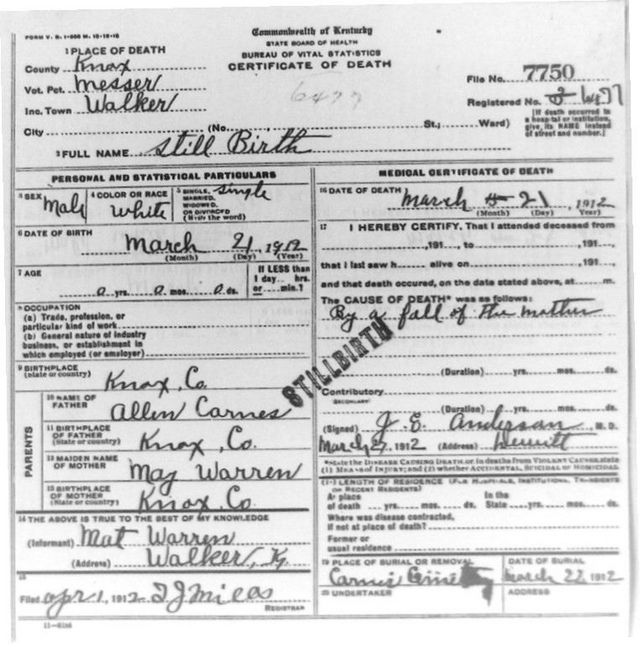 FORM V. S. 1-500 M. 10-12-10
Commonwealth of Kentucky
STATE BOARD OF HEALTH
BUREAU OF VITAL STATISTICS
CERTIFICATE OF DEATH
1 PLACE OF DEATH
County Knox
Vot. Pct. Messer
Inc. Town Walker
City (No. St.; Ward)
6477
File No. 7750
Registered No.
[If death occurred in a hospital or institution, give its NAME instead of street and number.]
2 FULL NAME Still Birth
PERSONAL AND STATISTICAL PARTICULARS
3 SEX Male
4 COLOR OR RACE White
5 SINGLE, MARRIED, WIDOWED OR DIVORCED (Write the word) Single
6 DATE OF BIRTH March 21, 1912
(Month) (Day) (Year)
7 AGE 0 yrs. 0 mos. 0 ds.
If LESS than 1 day... hrs. or... min.?
8 OCCUPATION
(a) Trade, profession, or particular kind of work
(b) General nature of industry business, or establishment in which employed (or employer)
9 BIRTHPLACE (State or country) Knox, Co.
PARENTS
10 NAME OF FATHER Allen Carnes
11 BIRTHPLACE OF FATHER (State or country) Knox, Co.
12 MAIDEN NAME OF MOTHER May Warren
13 BIRTHPLACE OF MOTHER (State or country) Knox Co.
14 THE ABOVE IS TRUE TO THE BEST OF MY KNOWLEDGE
(Informant) Mat Warren
(Address) Walker, Ky
15
Filed Apr 1, 1912
REGISTRAR
11-6184
MEDICAL CERTIFICATE OF DEATH
16 DATE OF DEATH March 21 1912
(Month) (Day) (Year)
17 I HEREBY CERTIFY, That I attended deceased from
, 191..., to , 191...,
that I last saw h alive on , 191...,
and that death occured, on the date stated above, at m.
The CAUSE OF DEATH* was as follows:
By a fall of the mother
STILLBIRTH
(Duration) yrs. mos. ds.
Contributory
SECONDARY
(Duration) yrs. mos. ds.
(Signed) J. E. Anderson M. D.
March 27, 1912 (Address) Hewitt
*State the DISEASE CAUSING DEATH, or in deaths from VIOLENT CAUSES state (1) MEANS OF INJURY; and (2) whether ACCIDENTAL, SUICIDAL or HOMICIDAL.
LENGTH OF RESIDENCE (FOR HOSPITALS, INSTITUTIONS, TRANSIENTS OR RECENT RESIDENTS)
At place of death yrs. mos. ds. In the State yrs. mos. ds.
Where was disease contracted,
if not at place of death?
Former or
usual residence
19 PLACE OF BURIAL OR REMOVAL DATE OF BURIAL
March 22, 1912
20 UNDERTAKER ADDRESS